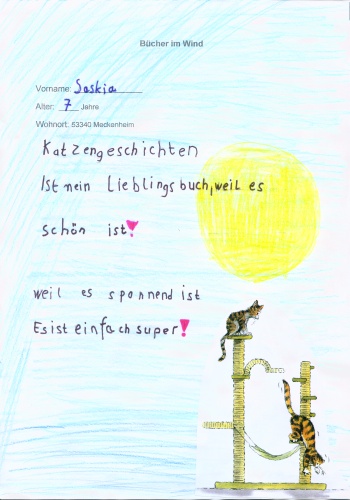 Bücher im Wind
Vorname: Saskia
Alter: 7 Jahre
Wohnort: 53340 Meckenheim
Katzengeschichten
Ist mein Lieblingsbuch, weil es
schön ist!
weil es spannend ist
Es ist einfach super!